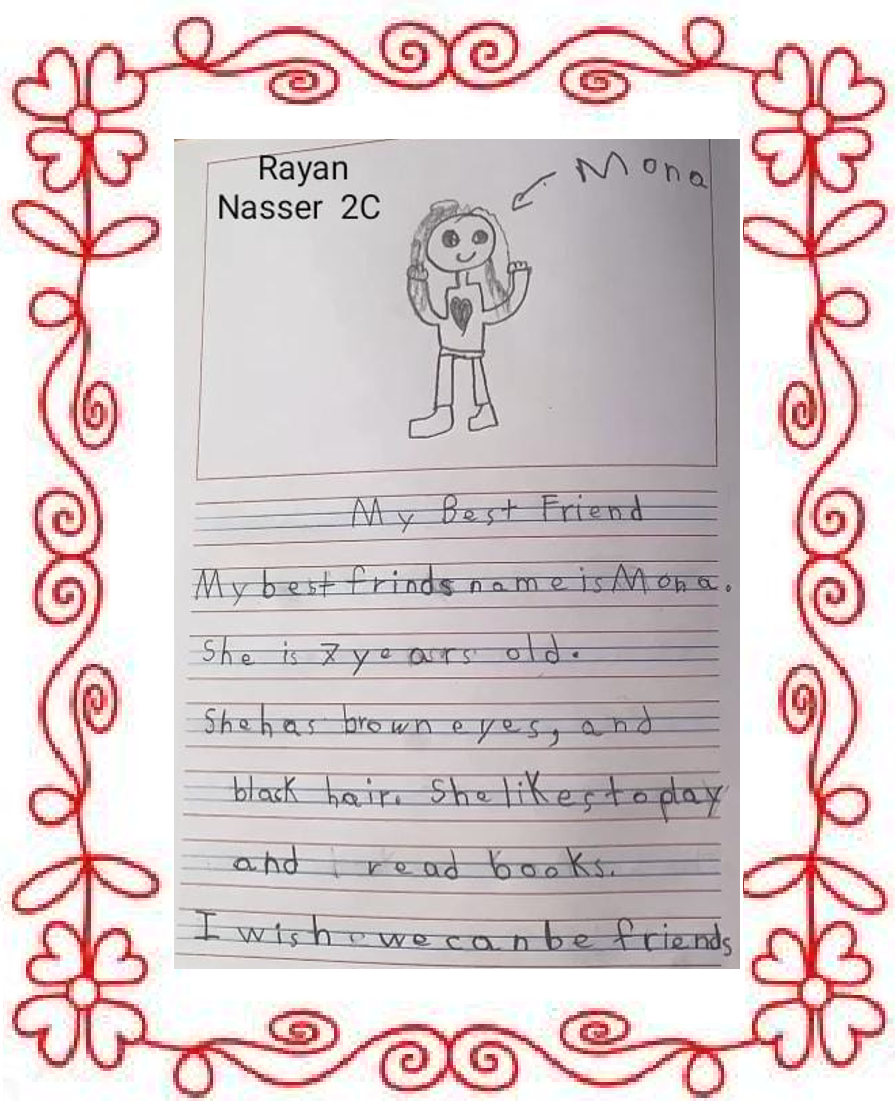 Rayan
Nasser 2C
Mona
My Best Friend
My best frinds name is Mona.
She is 7 years old.
She has brown eyes, and
black hair. She likes to play
and read books.
I wish we can be friends